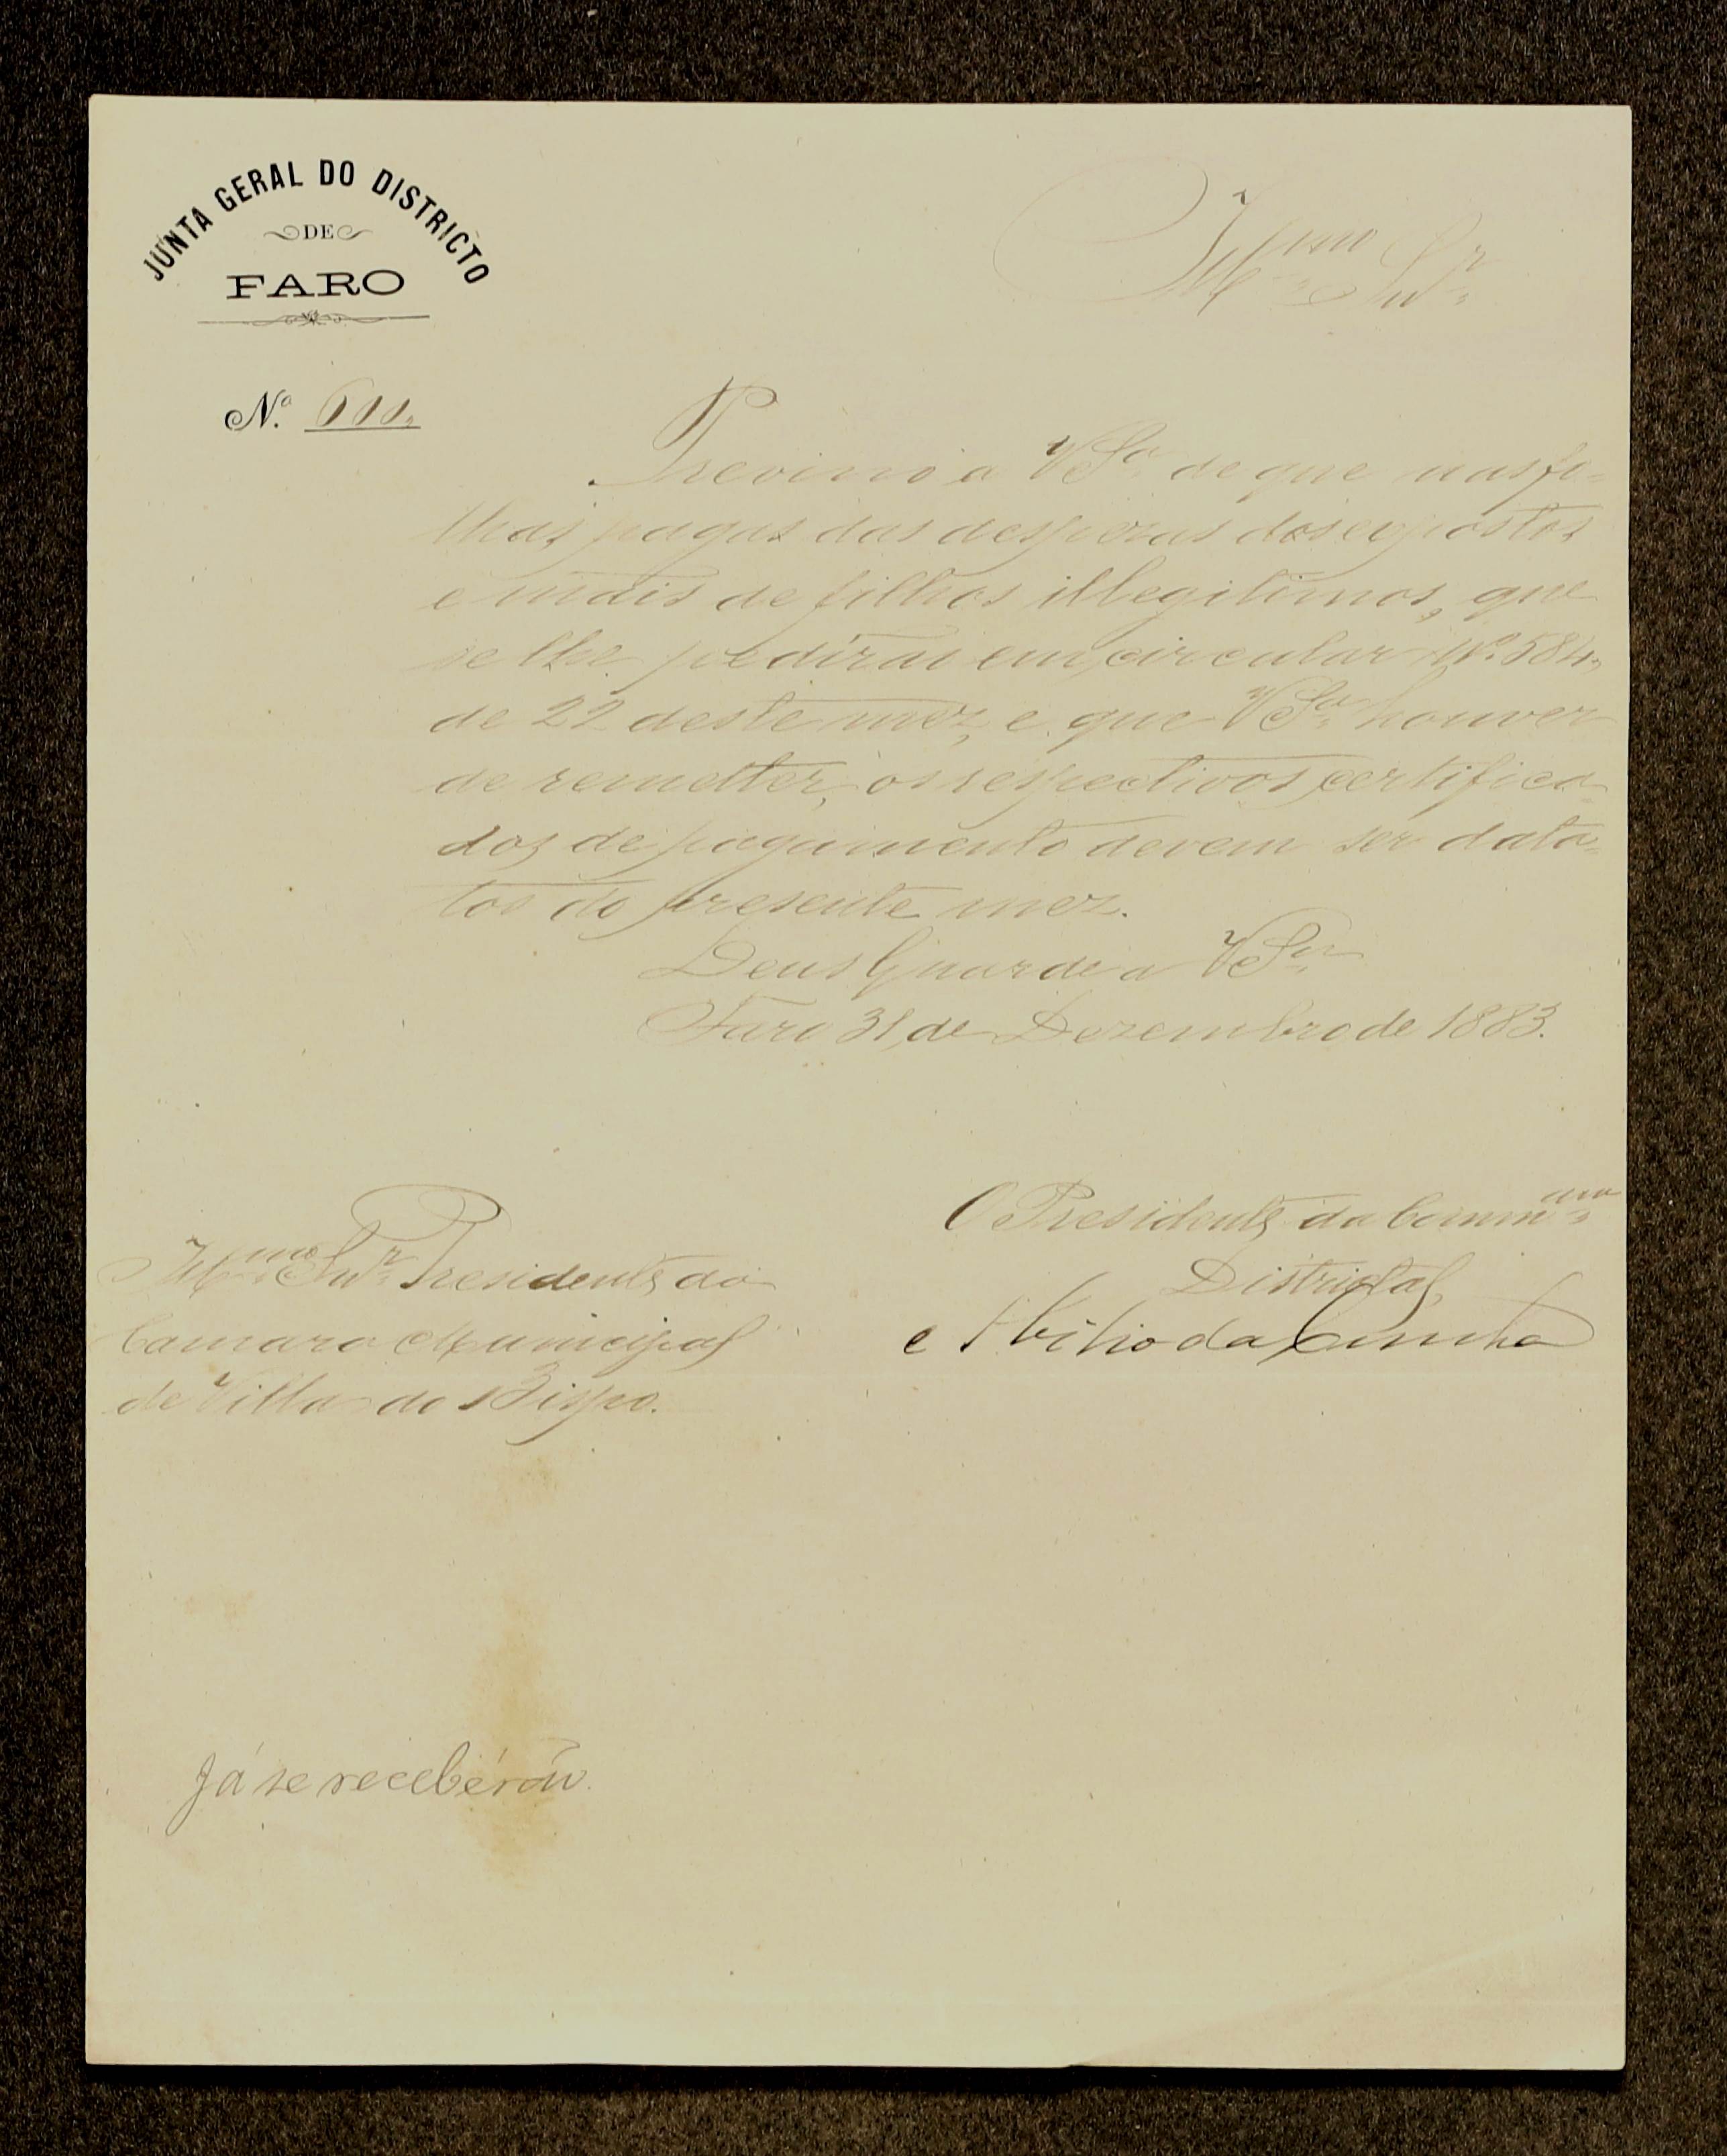 JUNTA GERAL DO DISTRICTO
DE
FARO
Illmo Snr
N.º 611.
Previno a VSa de que nas fo-
lhas pagas das despezas dos expostos
e mais de filhos illegitimos, que
se lhe pedirão em circular Nº 584,
de 22 deste mez, e que VSa houver
de remetter, os respectivos certifica
dos de pagamento devem ser data-
dos do presente mez.
Deus Guarde a VSa
Faro 31, de Dezembro de 1883.
O Presidente da Commam
Districtal,
Abilio da Cunha
Illmo Snr Presidente da
Camara Municipal
de Villa do Bispo.
Já se recebérão.